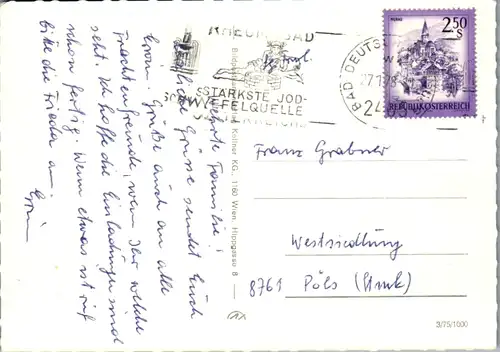 RHEUMABAD
STÄRKSTE JOD-
SCHWEFELQUELLE
BAD DEUTSCH
24
MURAU
2.50
S
REPUBLIK ÖSTERREICH
Familie!
Herzliche Grüße sendet Euch
Erni. Grüße auch an alle
Trachtenfreunde, wenn Ihr welche
seht. Ich hoffe die Einladungen sind
schon fertig. Wenn etwas ist ruf
bitte die Frieda an.
Erni
Kellner KG., 1160 Wien, Hippgasse 8
Franz Grabner
Westsiedlung
8761 Pöls (Stmk)
3/75/1000